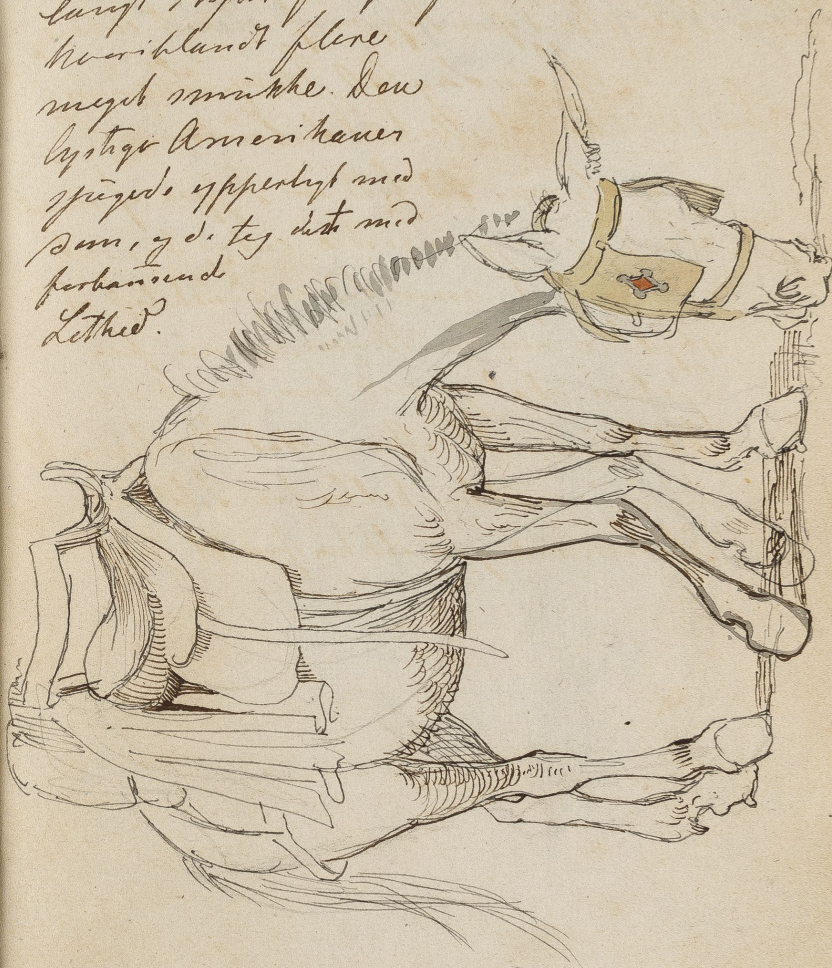 langt
hvoriblandt flere
meget smukke. Den
lystige Amerikaner
spøgede ypperligt med
dem, og de tog det med
forbausende
Lethed.